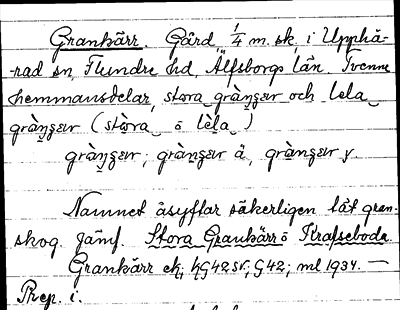 Grankärr. Gård, 1/4 m. sk. i Upphä-
-rad sn, Flundre hd, Älfsborgs län. Tvenne
hemmansdelar, stora gràŋʒer och lela
gràŋʒer (stòra ō lèla)
gràŋʒer, gràŋʒer å, gràŋʒer v.
Namnet åsyftar säkerligen tät gran-
skog. Jämf. Stora Grankärr ō Krafseboda
Grankärr ek; KG42SV; G42; ml 1934. —
Prep. i.